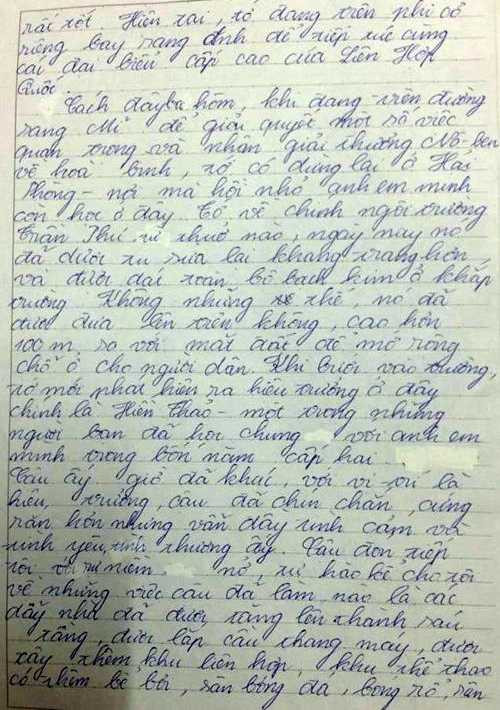 rất tốt. Hiện tại, tớ đang trên phi cơ
riêng bay sang Anh để tiếp tục cùng
các đại biểu cấp cao của Liên Hợp
Quốc.
Cách đây ba hôm, khi đang trên đường
sang Mĩ để giải quyết một số việc
quan trọng và nhận giải thưởng Nô-ben
về hoà bình, tớ có dừng lại ở Hải
Phòng - nơi mà hồi nhỏ anh em mình
còn học ở đây. Tớ về chính ngôi trường
Trần Phú từ thuở nào, ngày nay nó
đã được tu sửa lại khang trang hơn,
và được dát toàn bộ bạch kim ở khắp
trường. Không những thế, nó đã
được đưa lên trên không, cao hơn
100 m so với mặt đất để mở rộng
chỗ ở cho người dân. Khi bước vào trường,
tớ mới phát hiện ra hiệu trưởng ở đây
chính là Hiền Thảo - một trong những
người bạn đã học chung với anh em
mình trong bốn năm cấp hai
Cậu ấy giờ đã khác, với vị trí là
hiệu trưởng, cậu đã chín chắn, cứng
rắn hơn nhưng vẫn đầy tình cảm và
tình yêu, tình thương ấy. Cậu đón tiếp
tôi với sự niềm nở, tự hào kể cho tôi
về những việc cậu đã làm nào là các
dãy nhà đã được tăng lên thành sáu
tầng, được lắp cầu thang máy, được
xây thêm khu liên hợp, khu thể thao
có thêm bể bơi, sân bóng đá, bóng rổ, sân